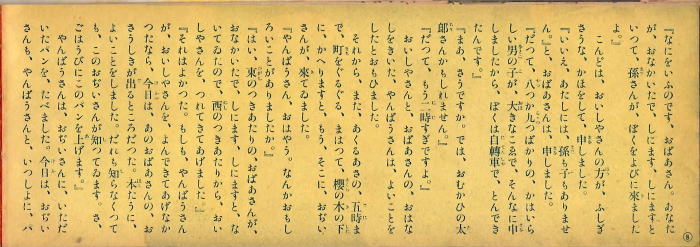 『なにをいふのです、おばあさん。あなた
が、おなかいたで、しにます、しにますと
いつて、孫さんが、ぼくをよびに來ました
よ。』
こんどは、おいしやさんの方が、ふしぎ
さうな、かほをして、申しました。
『いいえ、あたしには、孫も子もありませ
ん。』と、おばあさんは、申しました。
『だつて、八つか九つばかりの、かはいら
しい男の子が、大きなこゑで、そんなに申
しましたから、ぼくは自轉車で、とんでき
たんです。』
『まあ、さうですか。では、おむかひの太
郎さんかもしれません。』
『だつて、もう二時すぎですよ。』
おいしやさんと、おばあさんの、おはな
しをきいた、やんばうさんは、よいことを
したとおもひました。
それから、また、あくるあさの、五時ま
で、町をぐるぐる、まはつて、櫻の木の下
に、かへりますと、もう、そこに、おぢい
さんが、來てゐました。
『やんばうさん、おはやう。なんかおもし
ろいことがありましたか。』
『はい、東のつきあたりの、おばあさんが、
おなかいたで、しにます、しにますと、な
いてゐたので、西のつきあたりから、おい
しやさんを、つれてきてあげました。』
『それはよかつた。もしも、やんばうさん
が、おいしやさんを、よんできてあげなか
つたなら、今日は、あのおばあさんの、お
さうしきが出るところだつた。本たうに、
よいことをしました。だれも知らなくつて
も、このおぢいさんが知つてゐます。さ、
ごはうびにこのパンを上げます。』
やんばうさんは、おぢいさんに、いただ
いたパンを、たべました。今日は、おぢい
さんも、やんばうさんと、いつしよに、パ
8